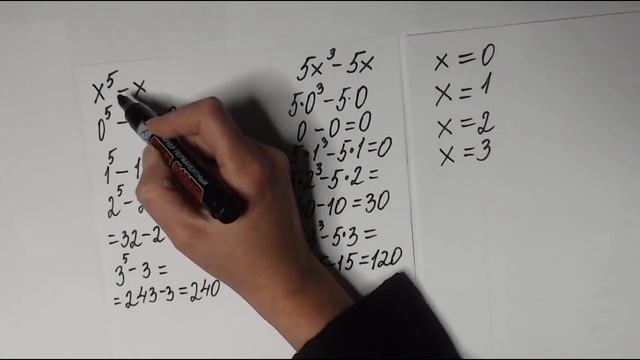 x⁵-x
0⁵-
1⁵-1
2⁵-2
=32-2
3⁵-3=
=243-3=240
5x³-5x
5·0³-5·0
0-0=0
5·1³-5·1=0
5·2³-5·2=
40-10=30
3³-5·3=
5-15=120
x=0
x=1
x=2
x=3